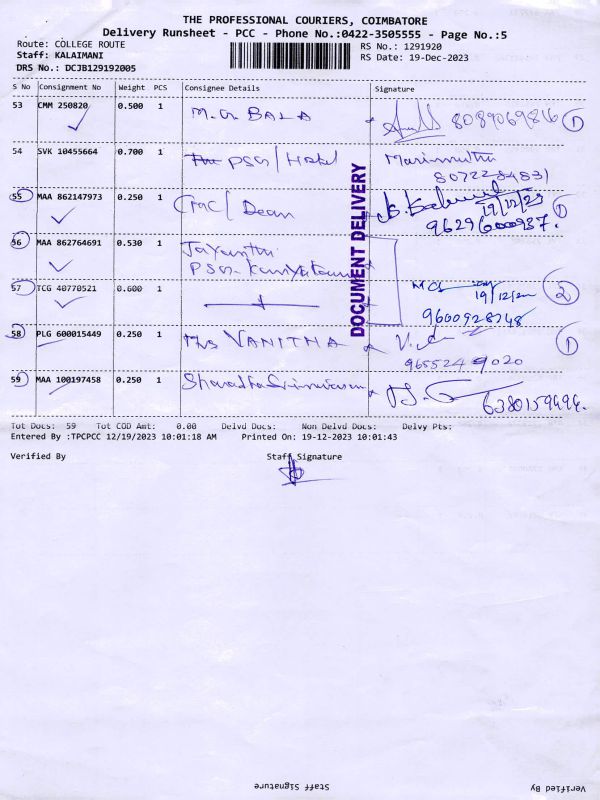 THE PROFESSIONAL COURIERS, COIMBATORE
Delivery Runsheet - PCC - Phone No.:0422-3505555 - Page No.:5
Route: COLLEGE ROUTE RS No.: 1291920
Staff: KALAIMANI RS Date: 19-Dec-2023
DRS No.: DCJB129192005
S No Consignment No Weight PCS Consignee Details Signature
53 CMM 250820 0.500 1 BALA 1
54 SVK 10455664 0.700 1 PSG / Hostel Marimuthu
8072284831
55 MAA 862147973 0.250 1 Dean 19/12/23 1
9629600937.
56 MAA 862764691 0.530 1 Jayanthi
PSG.
57 TCG 40770521 0.600 1 19/12/ 2
9600928748
58 PLG 600015449 0.250 1 VANITHA 1
9655249020
59 MAA 100197458 0.250 1 6380159494.
DOCUMENT DELIVERY
Tot Docs: 59 Tot COD Amt: 0.00 Delvd Docs: Non Delvd Docs: Delvy Pts:
Entered By :TPCPCC 12/19/2023 10:01:18 AM Printed On: 19-12-2023 10:01:43
Verified By Staff Signature
Staff Signature Verified By